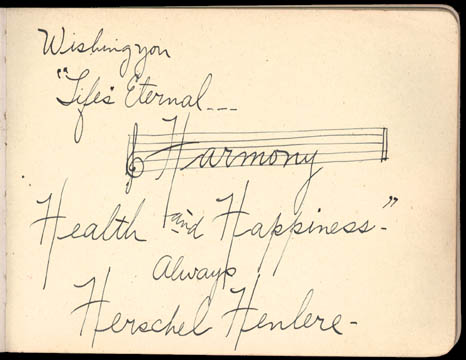 Wishing you
"Life's Eternal---
Harmony
Health and Happiness-"
Always
Herschel Henlere-